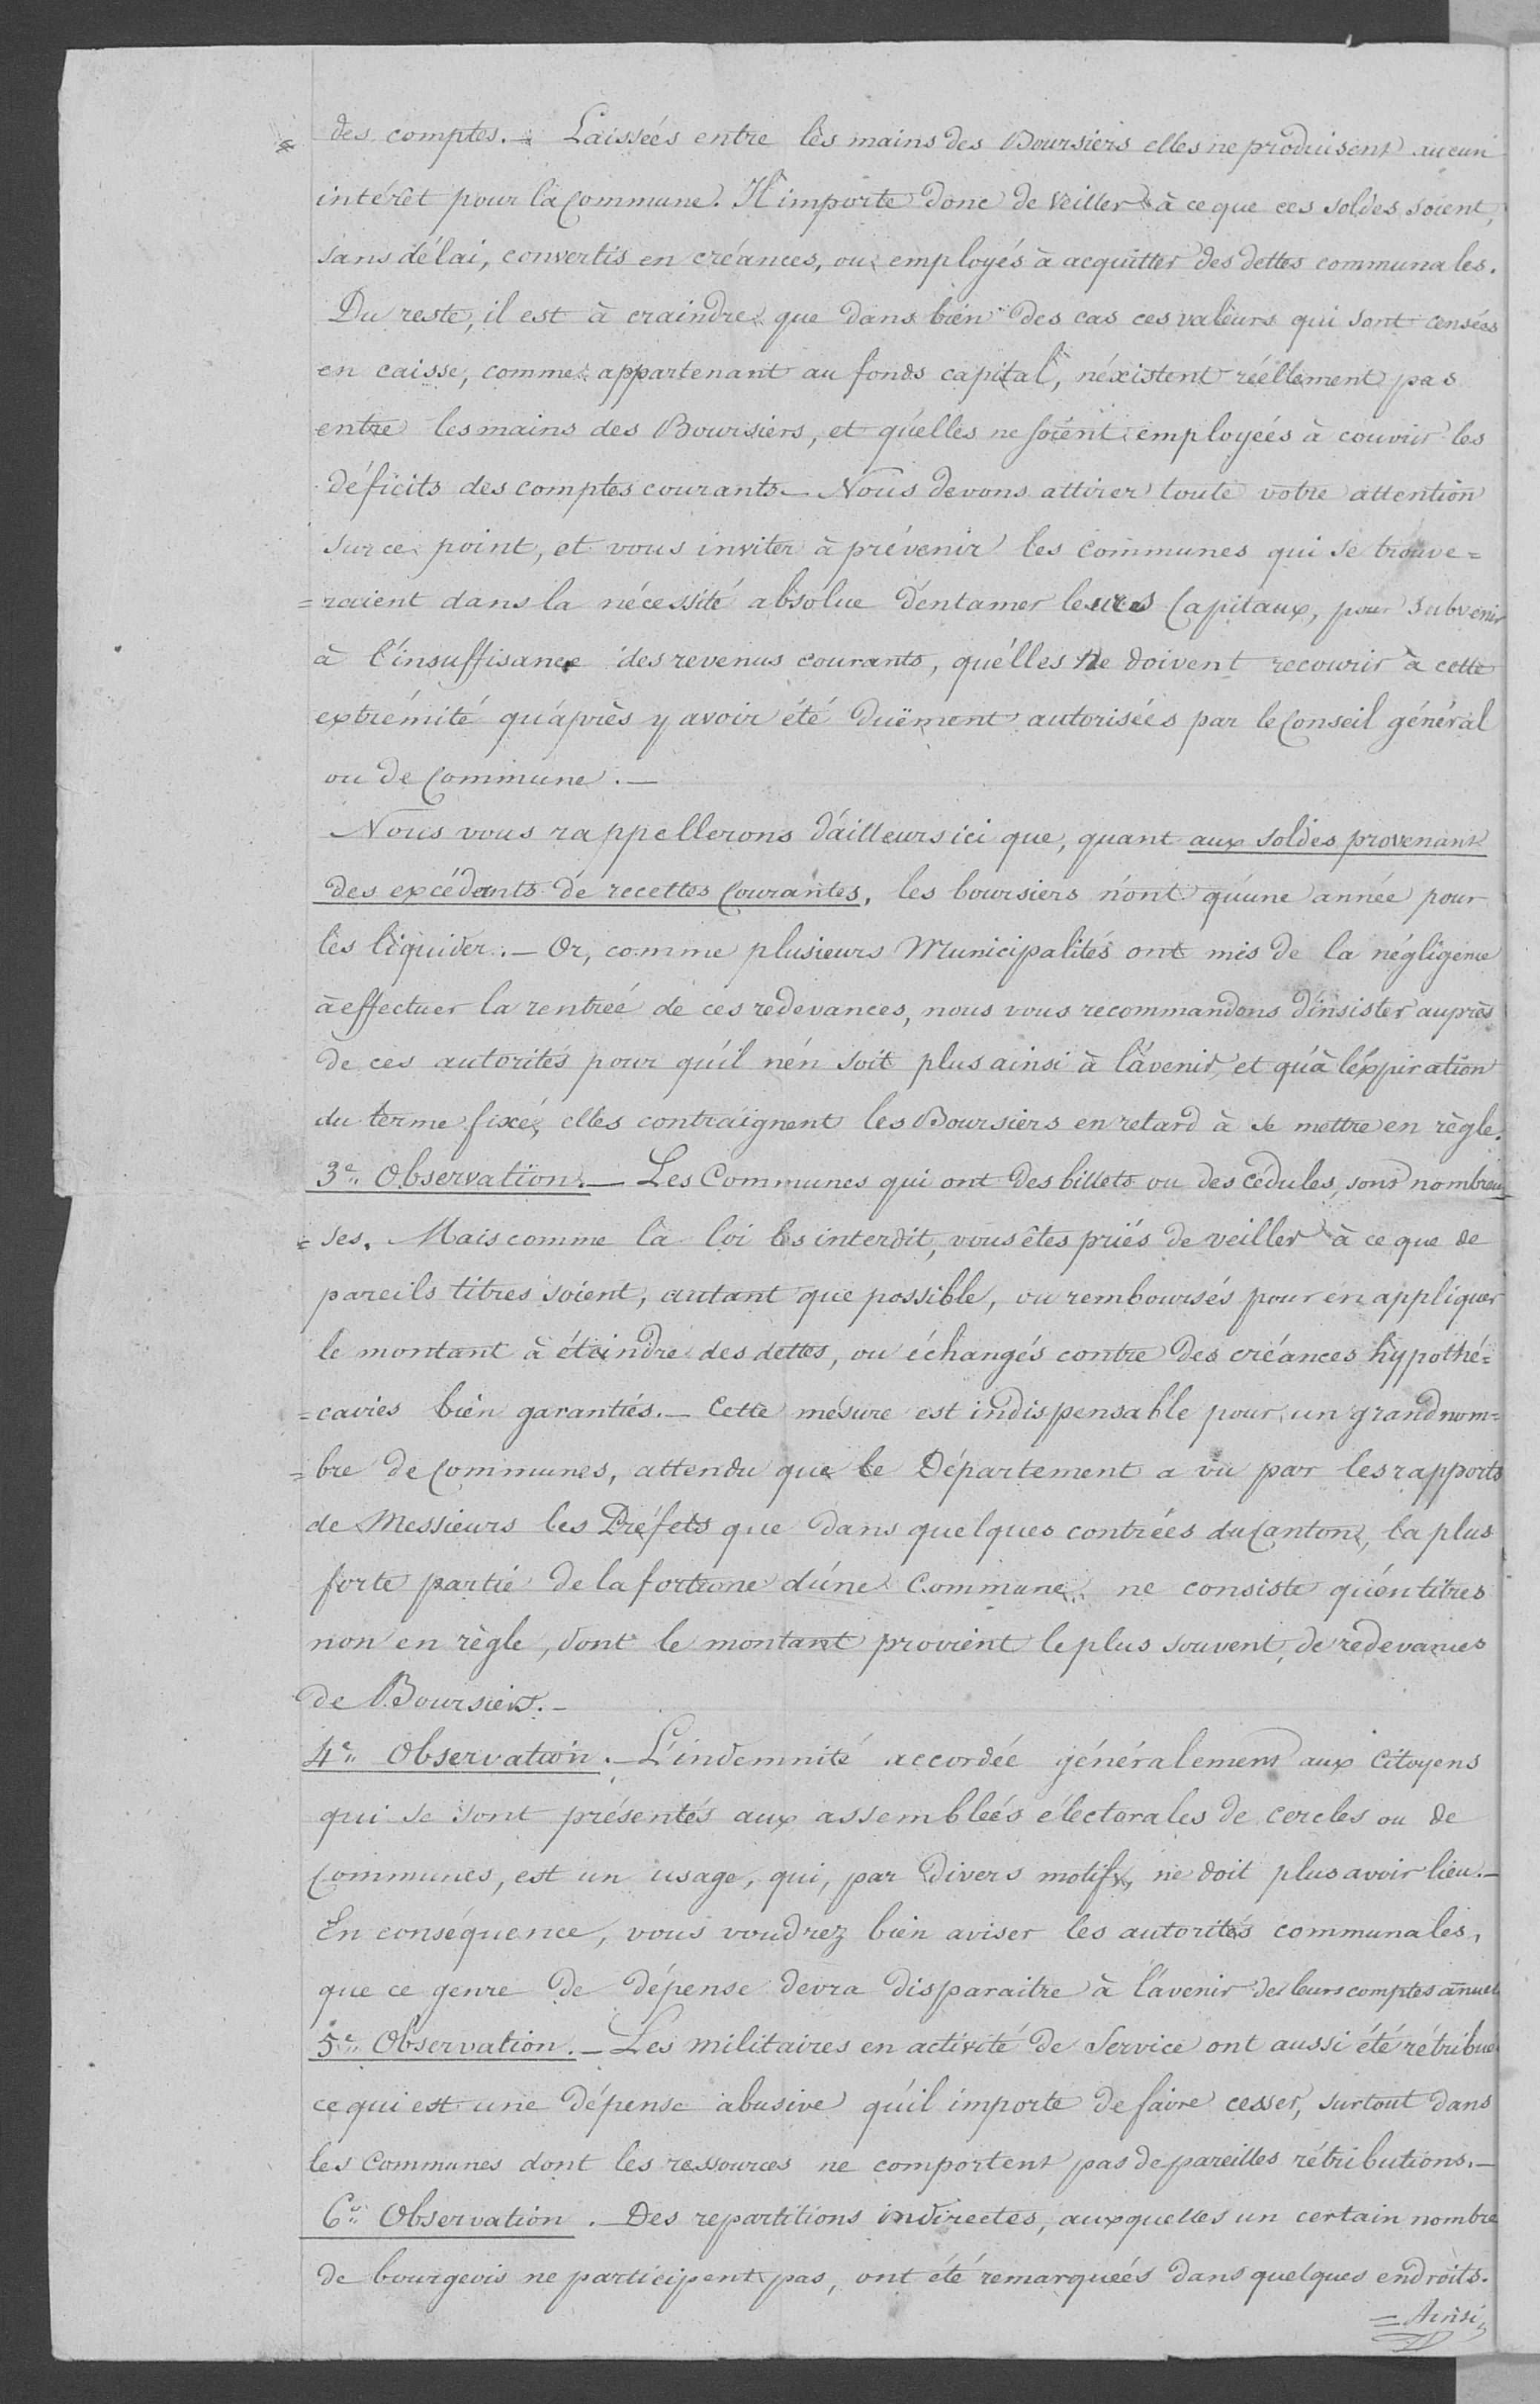 des comptes. — Laissées entre les mains des Boursiers elles ne produisent aucun
intérêt pour la Commune. Il importe donc de veiller à ce que ces soldes soient,
sans délai, convertis en créances, ou employés à acquitter des dettes communales.
Du reste, il est à craindre que dans bien des cas ces valeurs qui sont censées
en caisse, comme appartenant au fonds capital, n'éxistent réellement pas
entre les mains des Boursiers, et qu'elles ne soient employées à couvrir les
déficits des comptes courants. — Nous devons attirer toute votre attention
sur ce point, et vous inviter à prévenir les communes qui se trouve=
=raient dans la nécessité absolue d'entamer leurs Capitaux, pour subvenir
à l'insuffisance des revenus courants, qu'elles ne doivent recourir à cette
extrémité qu'après y avoir été duëment autorisées par le Conseil général
ou de Commune. —
Nous vous rappellerons d'ailleurs ici que, quant aux soldes provenant
des excédants de recettes Courantes, les boursiers n'ont qu'une année pour
les liquider. — Or, comme plusieurs Municipalités ont mis de la négligence
à effectuer la rentrée de ces redevances, nous vous recommandons d'insister auprès
de ces autorités pour qu'il n'en soit plus ainsi à l'avenir, et qu'à l'éxpiration
du terme fixé, elles contraignent les Boursiers en retard à se mettre en règle.
3e. Observation. — Les Communes qui ont des billets ou des cédules, sont nombreu
=ses. Mais comme la loi les interdit, vous êtes priés de veiller à ce que de
pareils titres soient, autant que possible, ou remboursés pour en appliquer
le montant à éteindre des dettes, ou échangés contre des créances hypothé=
=caires bien garanties. — Cette mesure est indispensable pour un grand nom=
=bre de Communes, attendu que le Département a vu par les rapports
de Messieurs les Préfets que dans quelques contrées du Canton, la plus
forte partie de la fortune d'une Commune ne consiste qu'en titres
non en règle, dont le montant provient le plus souvent, de redevances
de Boursiers. —
4e. Observation. — L'indemnité accordée généralement aux Citoyens
qui se sont présentés aux assemblées électorales de cercles ou de
Communes, est un usage, qui, par divers motifs, ne doit plus avoir lieu. —
En conséquence, vous voudrez bien aviser les autorités communales,
que ce genre de dépense devra disparaitre à l'avenir de leurs comptes annuels
5e. Observation. — Les militaires en activité de Service ont aussi été rétribués
ce qui est une dépense abusive qu'il importe de faire cesser, surtout dans
les Communes dont les ressources ne comportent pas de pareilles rétributions. —
6e. Observation. — Des repartitions indirectes, auxquelles un certain nombre
de bourgeois ne participent pas, ont été remarquées dans quelques endroits.
= Ainsi,